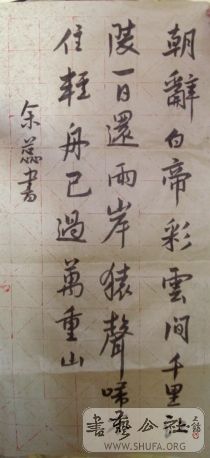 朝辭白帝彩雲間千里
陵一日還兩岸猿聲啼
住輕舟已過萬重山
余蕊書
書藝公社
WWW.SHUFA.ORG